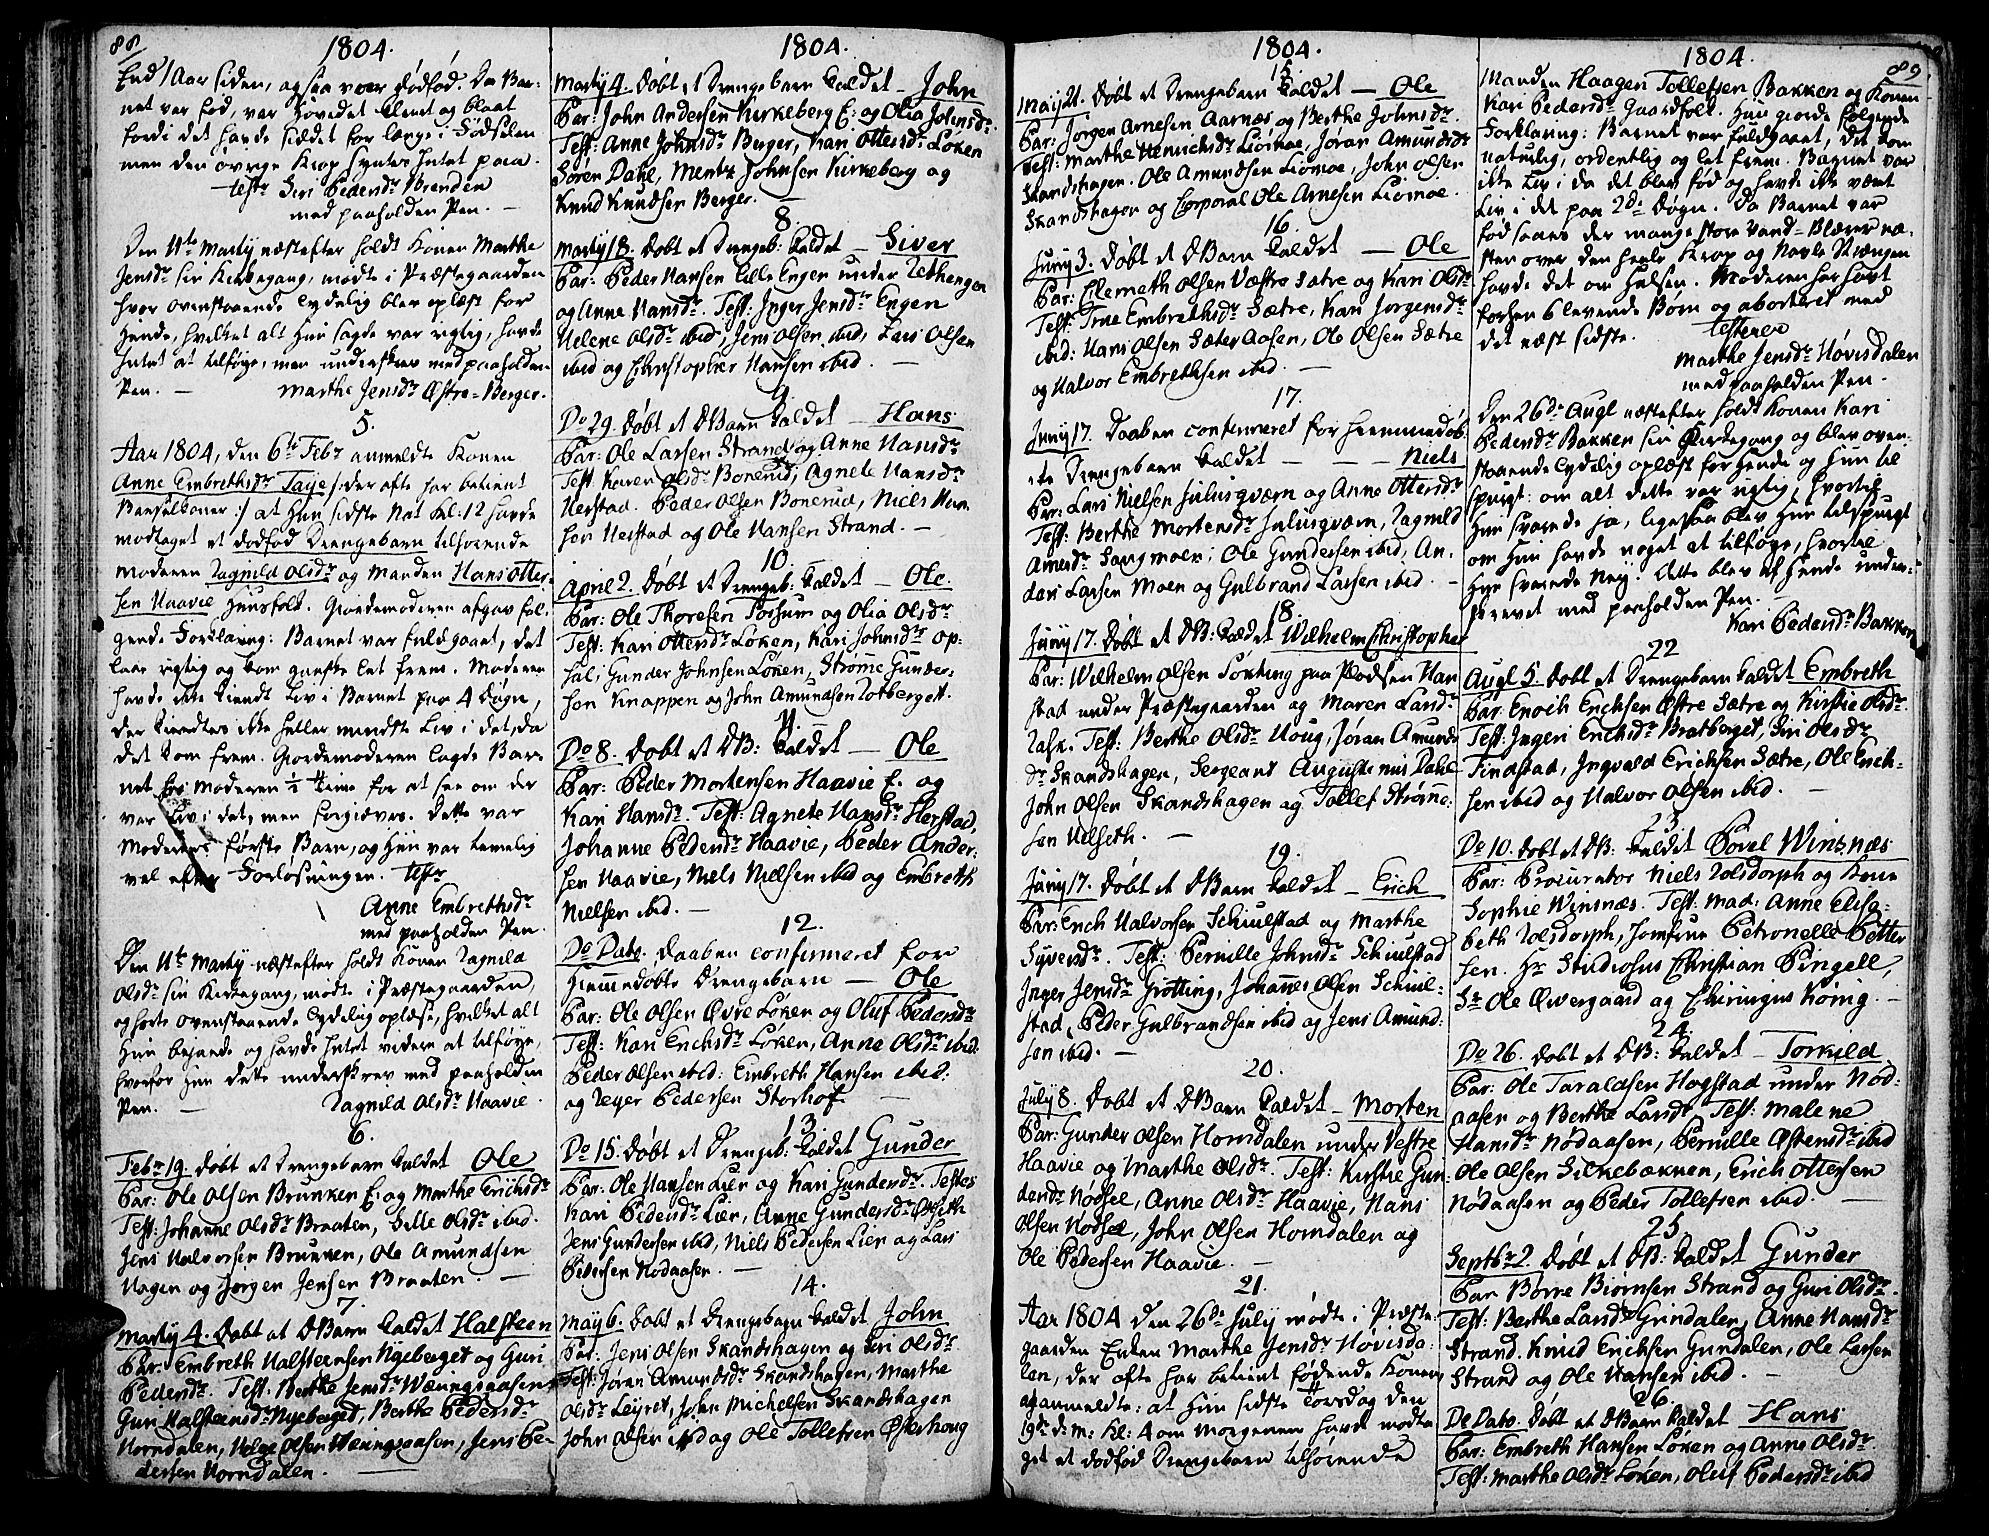 88
1804.
End 1 Aar siden, og saa var dødfød. Da Bar-
net var fød, var Hovedet blaat
fordi det havde siddet for længe i Fødselen
men den øvrige Krop syntes Intet paa.
testr Siri Pedersdr Brenden
med paaholden Pen. —
Den 11te Marty næstefter holdt Konen Marthe
Jensdr sin Kirkegang, mødte i Præstegaarden
hvor ovenstaaende lydelig blev oplæst for
hende, hvilket alt Hun sagde var rigtig, havde
Intet at tilføye, men underskrev med paaholden
Pen. — Marthe Jensdr Østre-Berger.
5.
Aar 1804, den 6te Febr anmeldte Konen
Anne Embrethsdr Taije /: der ofte har betient
Barselkoner :/ at Hun sidste Nat Kl: 12 havde
modtaget et dødfød Drengebarn tilhørende
Moderen Ragnild Olsdr og Manden Hans Otter-
sen Haavie Huusfolk. Giordemoderen afgav føl-
gende Forklaring: Barnet var fuldgaaet, det
laae rigtig og kom ganske let frem. Moderen
havde ikke kiendt Liv i Barnet paa 4 Døgn,
der kiendtes ikke heller mindste Liv i det, da
det kom frem. Giordemoderen lagde Bar-
net hos Moderen ½ Time for at see om der
var Liv i det, men forgiæves. Dette var
Moderens første Barn, og Hun var temelig
vel efter Forløsningen. testr
Anne Embrethsdr
med paaholden Pen.
Den 11te Marty næstefter holdt Konen Ragnild
Olsdr sin Kirkegang, mødte i Præstegaarden,
og hørte ovenstaaende lydelig oplæse, hvilket alt
Hun bejaede og havde Intet videre at tilføye,
hvorfor Hun dette underskrev med paaholden
Pen. — Ragnild Olsdr Haavie.
6.
Febr 19. Døbt et Drengebarn kaldet Ole
Par: Ole Olsen Brunken E: og Marthe Erichsdr
Test: Johanne Olsdr Braaten, Sille Olsdr ibid.
Jens Halvorsen Brunken, Ole Amundsen
Hagen og Jørgen Jensen Braaten. —
7.
Marty 4. Døbt et DBarn kaldet Halsteen
Par: Embreth Halsteensen Nyeberget og Guri
Pedersdr. Test: Berthe Jensdr Wæringsaasen
Guri Halsteensdr Nyeberget, Berthe Pedersdr
Horndalen, Helge Olsen Wæringsaasen, Jens Pe-
dersen Horndalen. —
1804.
Marty 4. Døbt et Drengebarn kaldet — John
Par: John Andersen Kirkeberg E: og Olia Johnsdr.
Test: Anne Johnsdr Berger, Kari Ottersdr Løken
Søren Dahl, Mentz Johnsen Kirkeberg og
Knud Knudsen Berger. —
8
Marty 18. Døbt et Drengeb: kaldet — Siver
Par: Peder Hansen Lille Engen under Rethengen
og Anne Hansdr. Test: Inger Jensdr Engen
Helene Olsdr ibid, Jens Olsen ibid, Lars Olsen
ibid og Christopher Hansen ibid. —
9.
Do 29. Døbt et DBarn kaldet — Hans
Par: Ole Larsen Strand og Anne Hansdr
Test: Karen Olsdr Bonerud, Agnete Hansdr
Herstad. Peder Olsen Bonerud, Niels Han-
sen Herstad og Ole Hansen Strand. —
10.
April 2. Døbt et Drengeb: kaldet — Ole
Par: Ole Thoresen Torsum og Olia Olsdr
Test: Kari Ottersdr Løken, Kari Johnsdr Op-
sal, Gunder Johnsen Løken, Strømme Gunder-
sen Knappen og John Amundsen Rotberget.
11.
Do 8. Døbt et DB: kaldet — Ole
Par: Peder Mortensen Haavie E. og
Kari Hansdr. Test: Agnete Hansdr Herstad,
Johanne Pedersdr Haavie, Peder Ander-
sen Haavie, Niels Nielsen ibid og Embreth
Nielsen ibid. —
12.
Do Dato. Daaben confirmeret for
hiemmedøbte Drengebarn — Ole
Par: Ole Olsen Øvre Løken og Oluf Pedersdr
Test: Kari Erichsdr Løken, Anne Olsdr ibid.
Peder Olsen ibid: Embreth Hansen ibid:
og Reyer Pedersen Storhof. —
13.
Do 15. Døbt et Drengeb: kaldet Gunder
Par: Ole Hansen Lier og Kari Gundersdr. Testes
Kari Pedersdr Lier, Anne Gundersdr Opseth
Jens Gundersen ibid, Niels Pedersen Lier og Lars
Pedersen Nodaasen. —
14.
May 6. Døbt et Drengebarn kaldet John
Par: Jens Olsen Skandshagen og Siri Olsdr
Test: Jøren Amundsdr Skandshagen, Marthe
Olsdr Leyret, John Michelsen Skandshagen
John Olsen ibid og Ole Tollefsen Østerhoug
1804.
15
May 21. Døbt et Drengebarn kaldet — Ole
Par: Jørgen Arnesen Aarnæs og Berthe Johnsdr.
Test: Marthe Henrichsdr Liømoe, Jøran Amundsdr
Skandshagen. Ole Amundsen Liømoe, John Olsen
Skandshagen og Corporal Ole Arnesen Liømoe.
16.
Juny 3. Døbt et DBarn kaldet — Ole
Par: Clemeth Olsen Væstre Sætre og Kari Olsdr
Test: Trne Embrethsdr Sætre, Kari Jørgensdr
ibid: Hans Olsen SæterAasen, Ole Olsen Sætre
og Halvor Embrethsen ibid. —
17.
Juny 17. Daaben confirmeret for hiemmedøb-
te Drengebarn kaldet — — Niels
Par: Lars Nielsen Juliusqværn og Anne Ottersdr
Test: Berthe Mortensdr Juliusqværn, Ragnild
Arnesdr Sangmoen: Ole Gundersen ibid, An-
ders Larsen Moen og Gulbrand Larsen ibid. —
18.
Juny 17. Døbt et DB: kaldet Wilhelm Christopher
Par: Wilhelm Olsen Forting paa Pladsen Han-
stad under Præstegaarden og Maren Land-
Rask. Test: Berthe Olsdr Houg, Jøran Amunds-
dr Skandshagen, Sergeant Augustinus Dahl
John Olsen Skandshagen og Tollef Strømme-
sen Helseth. —
19.
Juny 17. Døbt et DBarn kaldet — Erich
Par: Erich Halvorsen Schiulstad og Marthe
Syversdr. Test: Pernille Johnsdr Schiulstad
Inger Jensdr Grøtting, Johannes Olsen Schiul-
stad, Peder Gulbrandsen ibid og Jens Amund-
sen ibid. —
20.
July 8. Døbt et DBarn kaldet — Morten
Par: Gunder Olsen Horndalen under Vestre
Haavie og Marthe Olsdr. Test: Kirstie Gun-
dersdr Nodsee, Anne Olsdr Haavie, Hans
Olsen Nodsee, John Olsen Horndalen og
Ole Pedersen Haavie. —
21.
Aar 1804 den 26de July mødte i Præste-
gaarden Enken Marthe Jensdr Hovisda-
len, der ofte har betient fødende Koner,
og anmeldte: at Hun sidste Torsdag den
19de d: M: Kl: 4 om Morgenen havde modta-
get et dødfød Drengebarn tilhørende
1804.
89.
Manden Haagen Tollefsen Bakken og Konen
Kari Pedersdr Gaardfolk. Hun giorde følgende
Forklaring: Barnet var fuldgaaet, det kom
naturlig, ordentlig og let frem. Barnet var
ikke Liv i da det blev fød og havde ikke vært
Liv i det paa 2de Døgn. Da Barnet var
fød saaes der mange store Vand-Blærer næ-
sten over den heele Krop og Navle Strængen
havde det om Halsen. Moderen har havt
forhen 6 levende Børn og aborteret med
det næst sidste. testerer
Marthe Jensdr Hovisdalen
med paaholden Pen.
Den 26de Augt næstefter holdt Konen Kari
Pedersdr Bakken sin Kirkegang og blev oven-
staaende lydelig oplæst for hende og Hun til-
spurgt: om alt dette var rigtig, hvortil
Hun svarede ja, ligesaa blev Hun tilspurgt
om Hun havde noget at tilføye, hvortil
Hun svarede Nej. Dette blev af hende under-
skrevet med paaholden Pen.
Kari Pedersdr Bakken
22
Augt 5. Døbt et Drengebarn kaldet Embreth
Par: Enoch Erichsen Østre Sætre og Kirstie Olsdr.
Test: Ingeri Erichsdr Bratberget, Siri Olsdr
Findstad, Ingvald Erichsen Sætre, Ole Erich-
sen ibid og Halvor Olsen ibid. —
23.
Do 10. Døbt et DB: kaldet Povel Winsnæs
Par: Procurator Niels Rolsdorph og Kone
Sophie Winsnæs. Test: Mad: Anne Elisa-
beth Rolsdorph, Jomfrue Petronelle Petter-
sen. Hr Studiosus Christian Pingell,
Sr Ole Øwergaard og Chirurgus König. —
24.
Do 26. Døbt et DB: kaldet — Torkild
Par: Ole Taraldsen Hogstad under Nod-
aasen og Berthe Larsdr Test: Malene
Hansdr Nodaasen, Pernille Østensdr ibid
Ole Olsen Silkebækken, Erich Ottersen
Nodaasen og Peder Tollefsen ibid. —
25
Septbr 2. Døbt et DB: kaldet Gunder
Par: Børre Biørnsen Strand og Guri Olsdr.
Test: Berthe Larsdr Grindalen, Anne Hansdr
Strand. Knud Erichsen Grindalen, Ole Larsen
Strand og Ole Hansen ibid. —
26
Do Dato. Døbt et DBarn kaldet Hans
Par: Embreth Hansen Løken og Anne Olsdr.
Test: Marthe Olsdr Løken, Oluf Pedersdr ibid